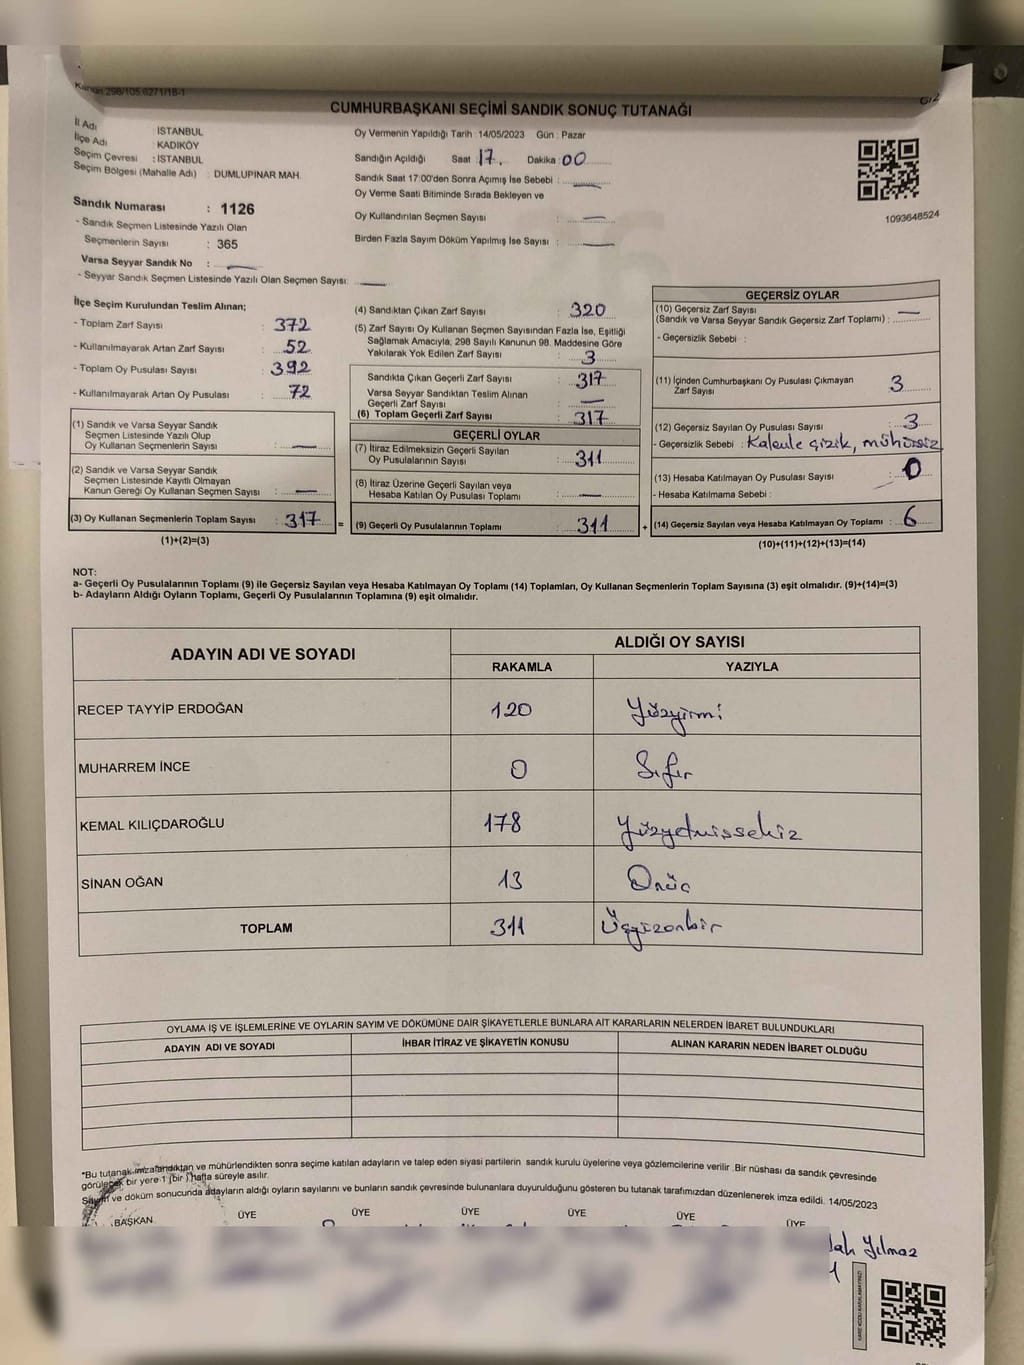 Kanun 298/105,6271/18-1
CUMHURBAŞKANI SEÇİMİ SANDIK SONUÇ TUTANAĞI
İl Adı : İSTANBUL
İlçe Adı : KADIKÖY
Seçim Çevresi : İSTANBUL
Seçim Bölgesi (Mahalle Adı) : DUMLUPINAR MAH.
Sandık Numarası : 1126
- Sandık Seçmen Listesinde Yazılı Olan
Seçmenlerin Sayısı : 365
Varsa Seyyar Sandık No : —
- Seyyar Sandık Seçmen Listesinde Yazılı Olan Seçmen Sayısı: —
Oy Vermenin Yapıldığı Tarih : 14/05/2023 Gün : Pazar
Sandığın Açıldığı Saat 17. Dakika : 00
Sandık Saat 17:00'den Sonra Açımış İse Sebebi : —
Oy Verme Saati Bitiminde Sırada Bekleyen ve
Oy Kullandırılan Seçmen Sayısı : —
Birden Fazla Sayım Döküm Yapılmış İse Sayısı : —
1093648524
İlçe Seçim Kurulundan Teslim Alınan;
- Toplam Zarf Sayısı : 372
- Kullanılmayarak Artan Zarf Sayısı : 52
- Toplam Oy Pusulası Sayısı : 392
- Kullanılmayarak Artan Oy Pusulası : 72
(1) Sandık ve Varsa Seyyar Sandık
Seçmen Listesinde Yazılı Olup
Oy Kullanan Seçmenlerin Sayısı : —
(2) Sandık ve Varsa Seyyar Sandık
Seçmen Listesinde Kayıtlı Olmayan
Kanun Gereği Oy Kullanan Seçmen Sayısı : —
(3) Oy Kullanan Seçmenlerin Toplam Sayısı : 317 =
(1)+(2)=(3)
(4) Sandıktan Çıkan Zarf Sayısı : 320
(5) Zarf Sayısı Oy Kullanan Seçmen Sayısından Fazla İse, Eşitliği
Sağlamak Amacıyla, 298 Sayılı Kanunun 98. Maddesine Göre
Yakılarak Yok Edilen Zarf Sayısı : 3
Sandıkta Çıkan Geçerli Zarf Sayısı : 317
Varsa Seyyar Sandıktan Teslim Alınan
Geçerli Zarf Sayısı : —
(6) Toplam Geçerli Zarf Sayısı : 317
GEÇERLİ OYLAR
(7) İtiraz Edilmeksizin Geçerli Sayılan
Oy Pusulalarının Sayısı : 311
(8) İtiraz Üzerine Geçerli Sayılan veya
Hesaba Katılan Oy Pusulası Toplamı : —
(9) Geçerli Oy Pusulalarının Toplamı : 311 +
GEÇERSİZ OYLAR
(10) Geçersiz Zarf Sayısı —
(Sandık ve Varsa Seyyar Sandık Geçersiz Zarf Toplamı) :
- Geçersizlik Sebebi :
(11) İçinden Cumhurbaşkanı Oy Pusulası Çıkmayan
Zarf Sayısı : 3
(12) Geçersiz Sayılan Oy Pusulası Sayısı : 3
- Geçersizlik Sebebi : Kalemle çizik, mühürsüz
(13) Hesaba Katılmayan Oy Pusulası Sayısı : 0
- Hesaba Katılmama Sebebi :
(14) Geçersiz Sayılan veya Hesaba Katılmayan Oy Toplamı : 6
(10)+(11)+(12)+(13)=(14)
NOT:
a- Geçerli Oy Pusulalarının Toplamı (9) ile Geçersiz Sayılan veya Hesaba Katılmayan Oy Toplamı (14) Toplamları, Oy Kullanan Seçmenlerin Toplam Sayısına (3) eşit olmalıdır. (9)+(14)=(3)
b- Adayların Aldığı Oyların Toplamı, Geçerli Oy Pusulalarının Toplamına (9) eşit olmalıdır.
ADAYIN ADI VE SOYADI
ALDIĞI OY SAYISI
RAKAMLA YAZIYLA
RECEP TAYYİP ERDOĞAN 120 Yüzyirmi
MUHARREM İNCE 0 Sıfır
KEMAL KILIÇDAROĞLU 178 Yüzyetmişsekiz
SİNAN OĞAN 13 Onüç
TOPLAM 311 Üçyüzonbir
OYLAMA İŞ VE İŞLEMLERİNE VE OYLARIN SAYIM VE DÖKÜMÜNE DAİR ŞİKAYETLERLE BUNLARA AİT KARARLARIN NELERDEN İBARET BULUNDUKLARI
ADAYIN ADI VE SOYADI İHBAR İTİRAZ VE ŞİKAYETİN KONUSU ALINAN KARARIN NEDEN İBARET OLDUĞU
*Bu tutanak imzalandıktan ve mühürlendikten sonra seçime katılan adayların ve talep eden siyasi partilerin sandık kurulu üyelerine veya gözlemcilerine verilir. Bir nüshası da sandık çevresinde
görülecek bir yere 1 (bir) hafta süreyle asılır.
Sayım ve döküm sonucunda adayların aldığı oyların sayılarını ve bunların sandık çevresinde bulunanlara duyurulduğunu gösteren bu tutanak tarafımızdan düzenlenerek imza edildi. 14/05/2023
BAŞKAN ÜYE ÜYE ÜYE ÜYE ÜYE ÜYE
Yılmaz
KARE KODU KARALAMAYINIZ!